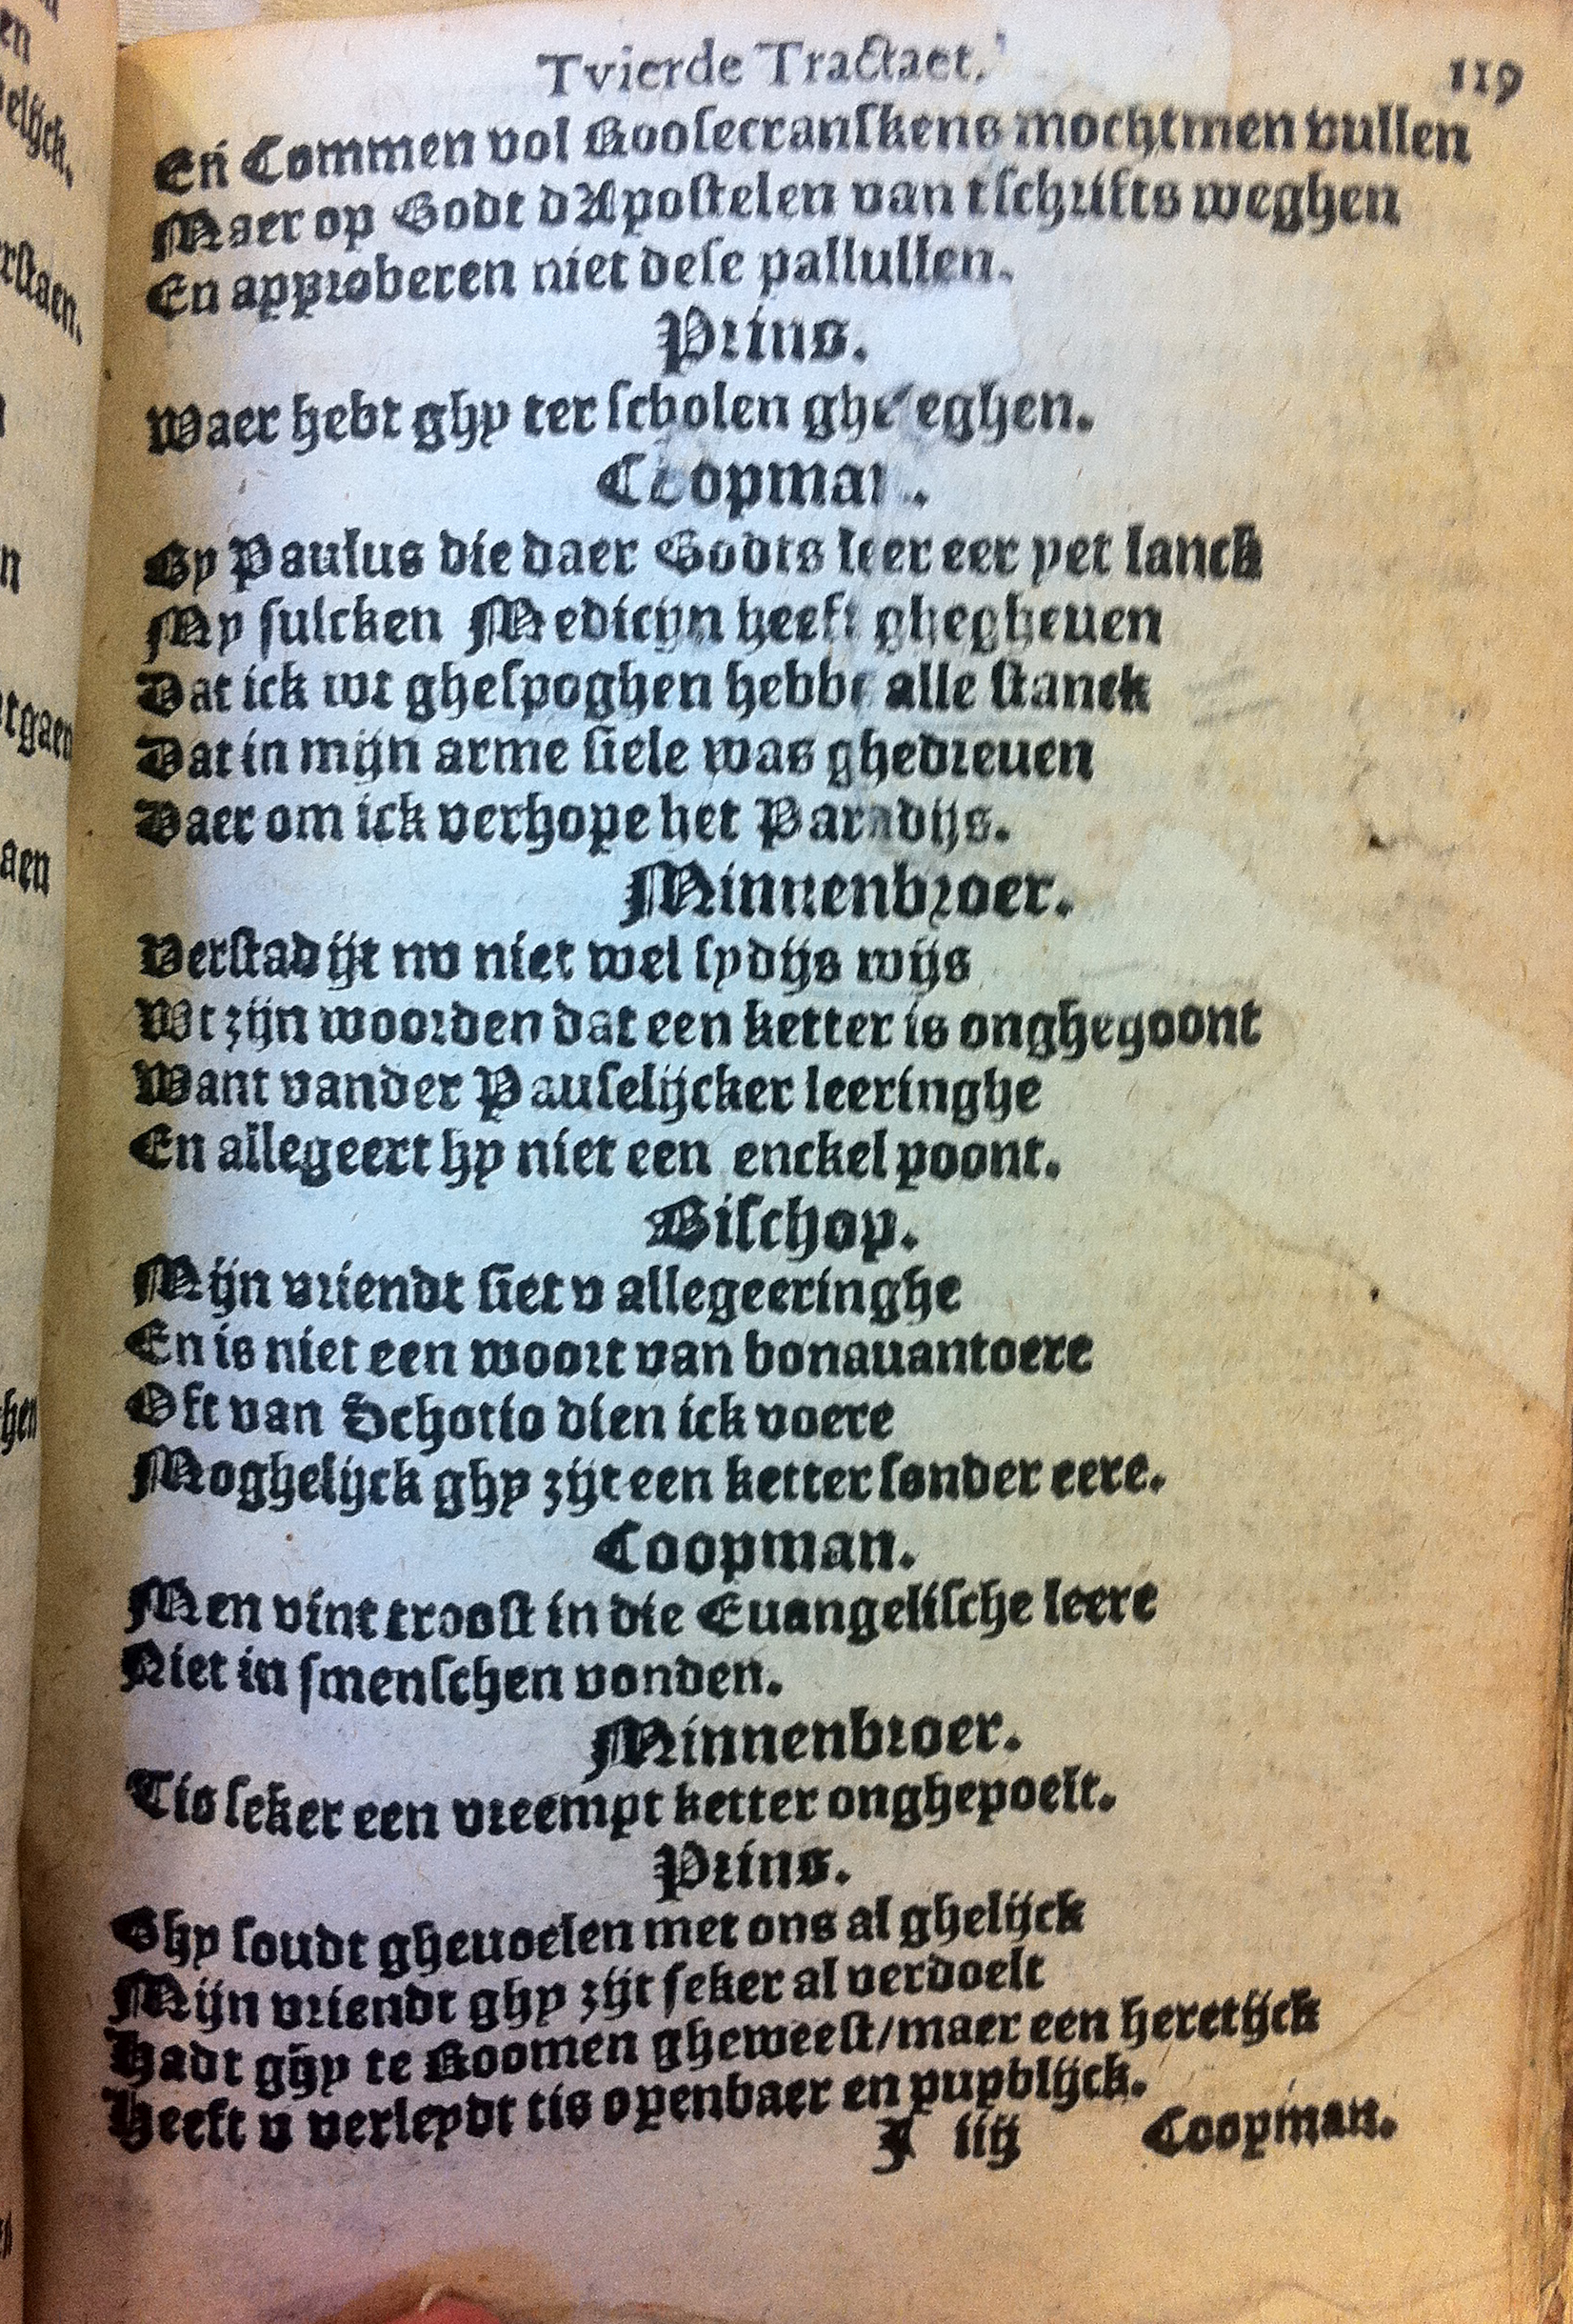 Tvierde Tractaet. 119
Eñ Commen vol Roosecranskens mochtmen vullen
Maer op Godt dApostelen van tschrifts weghen
En approberen niet dese pallullen.
Prins.
Waer hebt ghy ter scholen gheleghen.
Coopman.
By Paulus die daer Godts leer eer yet lanck
My sulcken Medicijn heeft ghegheuen
Dat ick wt ghespoghen hebbe alle stanck
Dat in mijn arme siele was ghedreuen
Daer om ick verhope het Paradijs.
Minnenbroer.
Verstadijt nv niet wel sydijs wijs
Wt zijn woorden dat een ketter is onghegoont
Want vander Pauselijcker leeringhe
En allegeert hy niet een enckel poont.
Bischop.
Mijn vriendt siet v allegeeringhe
En is niet een woort van bonauantoere
Oft van Schotio dien ick voere
Moghelijck ghy zijt een ketter sonder eere.
Coopman.
Men vint troost in die Euangelische leere
Niet in smenschen vonden.
Minnenbroer.
Tis seker een vreempt ketter onghepoelt.
Prins.
Ghy soudt gheuoelen met ons al ghelijck
Mijn vriendt ghy zijt seker al verdoelt
Hadt ghy te Roomen gheweest/maer een heretijck
Heeft v verleydt tis openbaer en pupblijck.
I iiij Coopman.